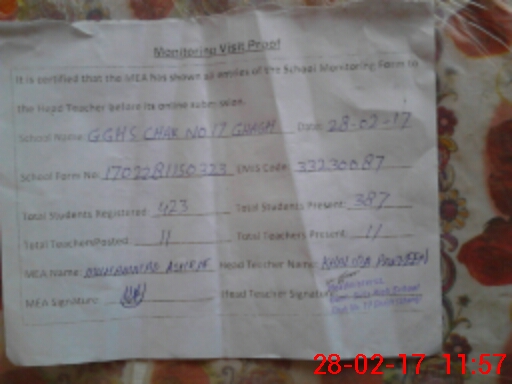 Monitoring Visit Proof
It is certified that the MEA has shown all entries of the School Monitoring Form to
the Head Teacher before its online submission.
School Name: GGHS CHAK NO 17 GHAGH Date: 28-02-17
School Form No: 1702281150323 EMIS Code: 33230087
Total Students Registered: 423 Total Students Present: 387
Total Teachers Posted: 11 Total Teachers Present: 11
MEA Name: MUHAMMAD ASHRAF Head Teacher Name: PARVEEN
MEA Signature: Head Teacher Signature:
Headmistress
Govt. Girls High School
28-02-17 11:57